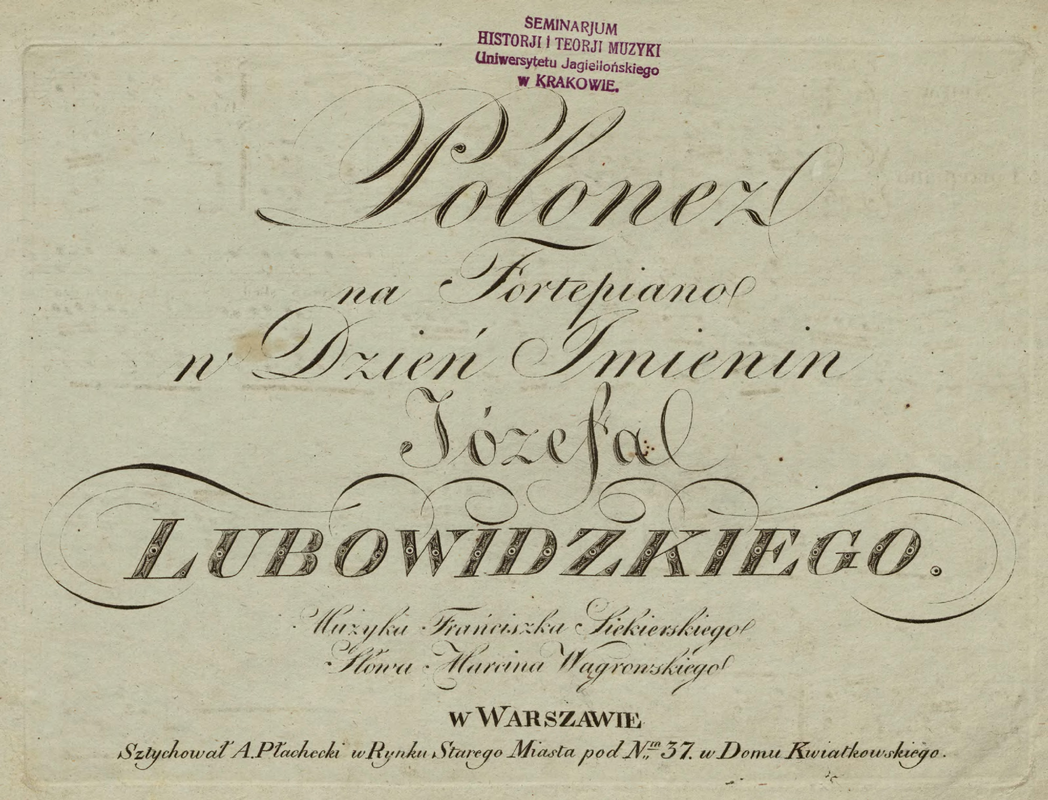 SEMINARJUM
HISTORJI i TEORJI MUZYKI
Uniwersytetu Jagiellońskiego
w KRAKOWIE.
Polonez
na Fortepiano
w Dzień Imienin
Józefa
LUBOWIDZKIEGO.
Muzyka Franciszka Siekierskiego
Słowa Marcina Wągrowskiego
w WARSZAWIE
Sztychował A. Płachecki w Rynku Starego Miasta pod Nrm 37. w Domu Kwiatkowskiego.